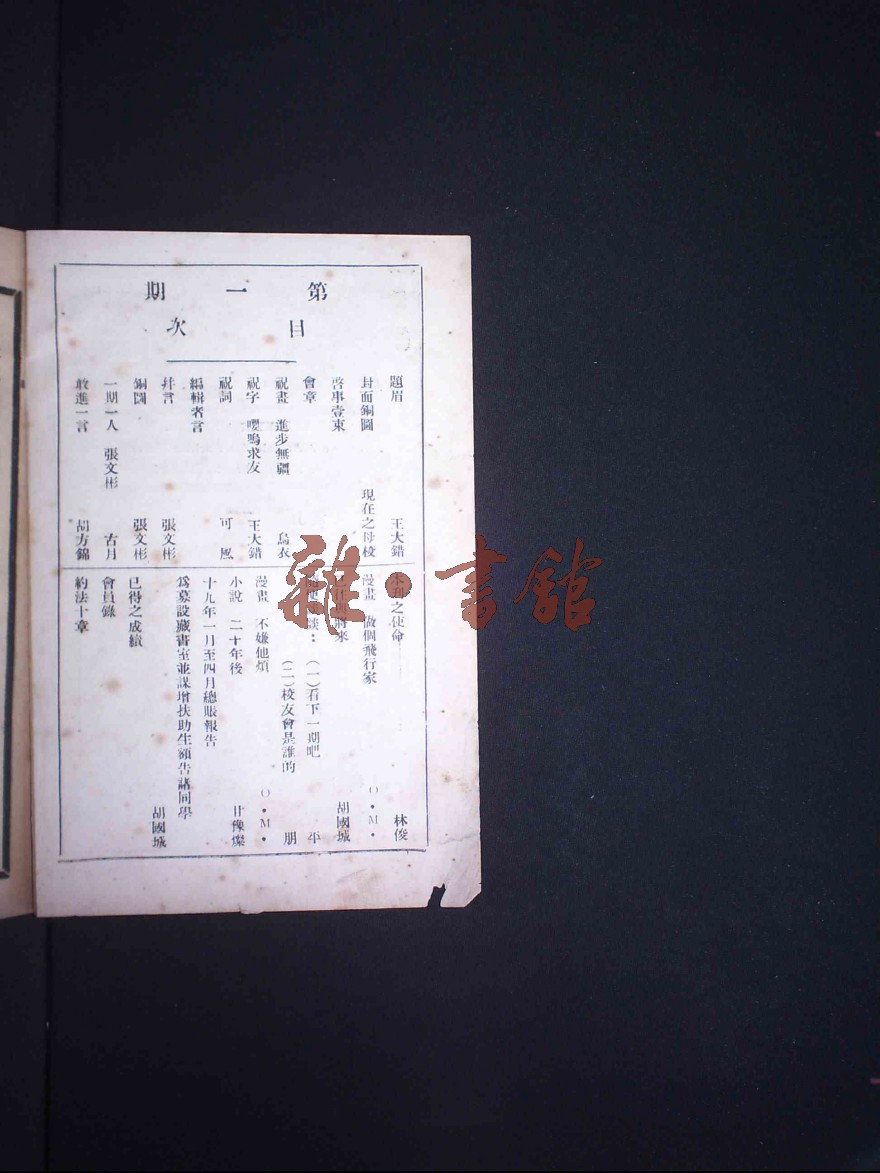 第一期
目次
題眉 王大錯
封面銅圖 現在之母校
啓事壹束
會章
祝畫 進步無疆 烏衣
祝字 嚶鳴求友 王大錯
祝詞 可風
編輯者言
弁言 張文彬
銅圖 張文彬
一期一人 張文彬 古月
敢進一言 胡方錦
本刊之使命 林俊
漫畫 做個飛行家 O·M·
已往與將來 胡國城
(一)看下一期吧
(二)校友會是誰的 朋
漫畫 不嫌他煩 O·M·
小說 二十年後 甘豫燦
十九年一月至四月總賬報告
爲募設藏書室並謀增扶助生額告諸同學 胡國城
已得之成績
會員錄
約法十章
雜·書館